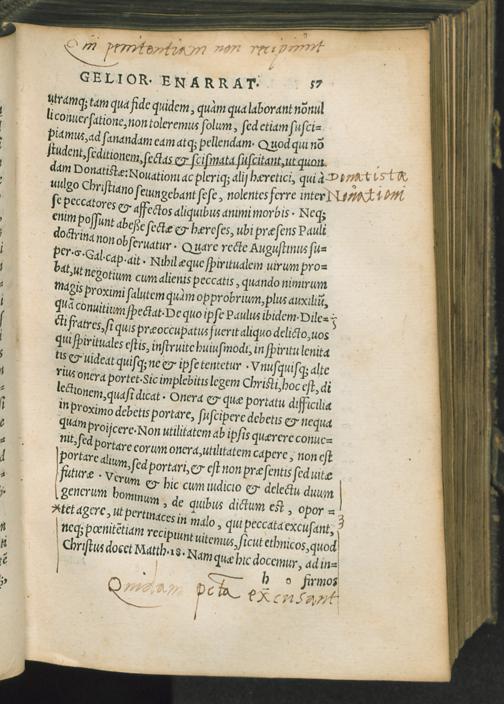 Qui penitentiam non recipiunt
GELIOR· ENARRAT· 57
utramq; tam qua fide quidem, quàm qua laborant nõnul
li conuersatione, non toleremus solum, sed etiam susci-
piamus, ad sanandam eam atq; pellendam· Quod qui nõ
student, seditionem, sectas & scismata suscitant, ut quon
dam Donatistæ: Nouationi ac pleriq; alij hæretici, qui à
uulgo Christiano seiungebant sese, nolentes ferre inter
se peccatores & affectos aliquibus animi morbis · Neq;
enim possunt abesse sectæ & hæreses, ubi præsens Pauli
doctrina non obseruatur · Quare recte Augustinus su-
per·6·Gal·cap·ait · Nihil æque spiritualem uirum pro-
bat, ut negotium cum alienis peccatis, quando nimirum
magis proximi salutem quàm opprobrium, plus auxiliũ,
quã conuitium spectat· De quo ipse Paulus ibidem· Dile-
cti fratres, si quis præoccupatus fuerit aliquo delicto, uos
qui spirituales estis, instruite huiusmodi, in spiritu lenita
tis & uideat quisq; ne & ipse tentetur · Vnusquisq; alte
rius onera portet· Sic implebitis legem Christi, hoc est, di
lectionem, quasi dicat · Onera & quæ portatu difficilia
in proximo debetis portare, suscipere debetis & nequa
quam proijcere· Non utilitatem ab ipsis quærere conue-
nit, sed portare eorum onera, utilitatem capere, non est
portare alium, sed portari, & est non præsentis sed uitæ
futuræ · Verum & hic cum iudicio & delectu duum
generum hominum, de quibus dictum est, opor-
*tet agere, ut pertinaces in malo, qui peccata excusant,
neq; pœnitẽtiam recipiunt uitemus, sicut ethnicos, quod
Christus docet Matth·18· Nam quæ hic docemur, ad in-
h o firmos
Donatistæ
Nouationi
Quidam pcta excusant